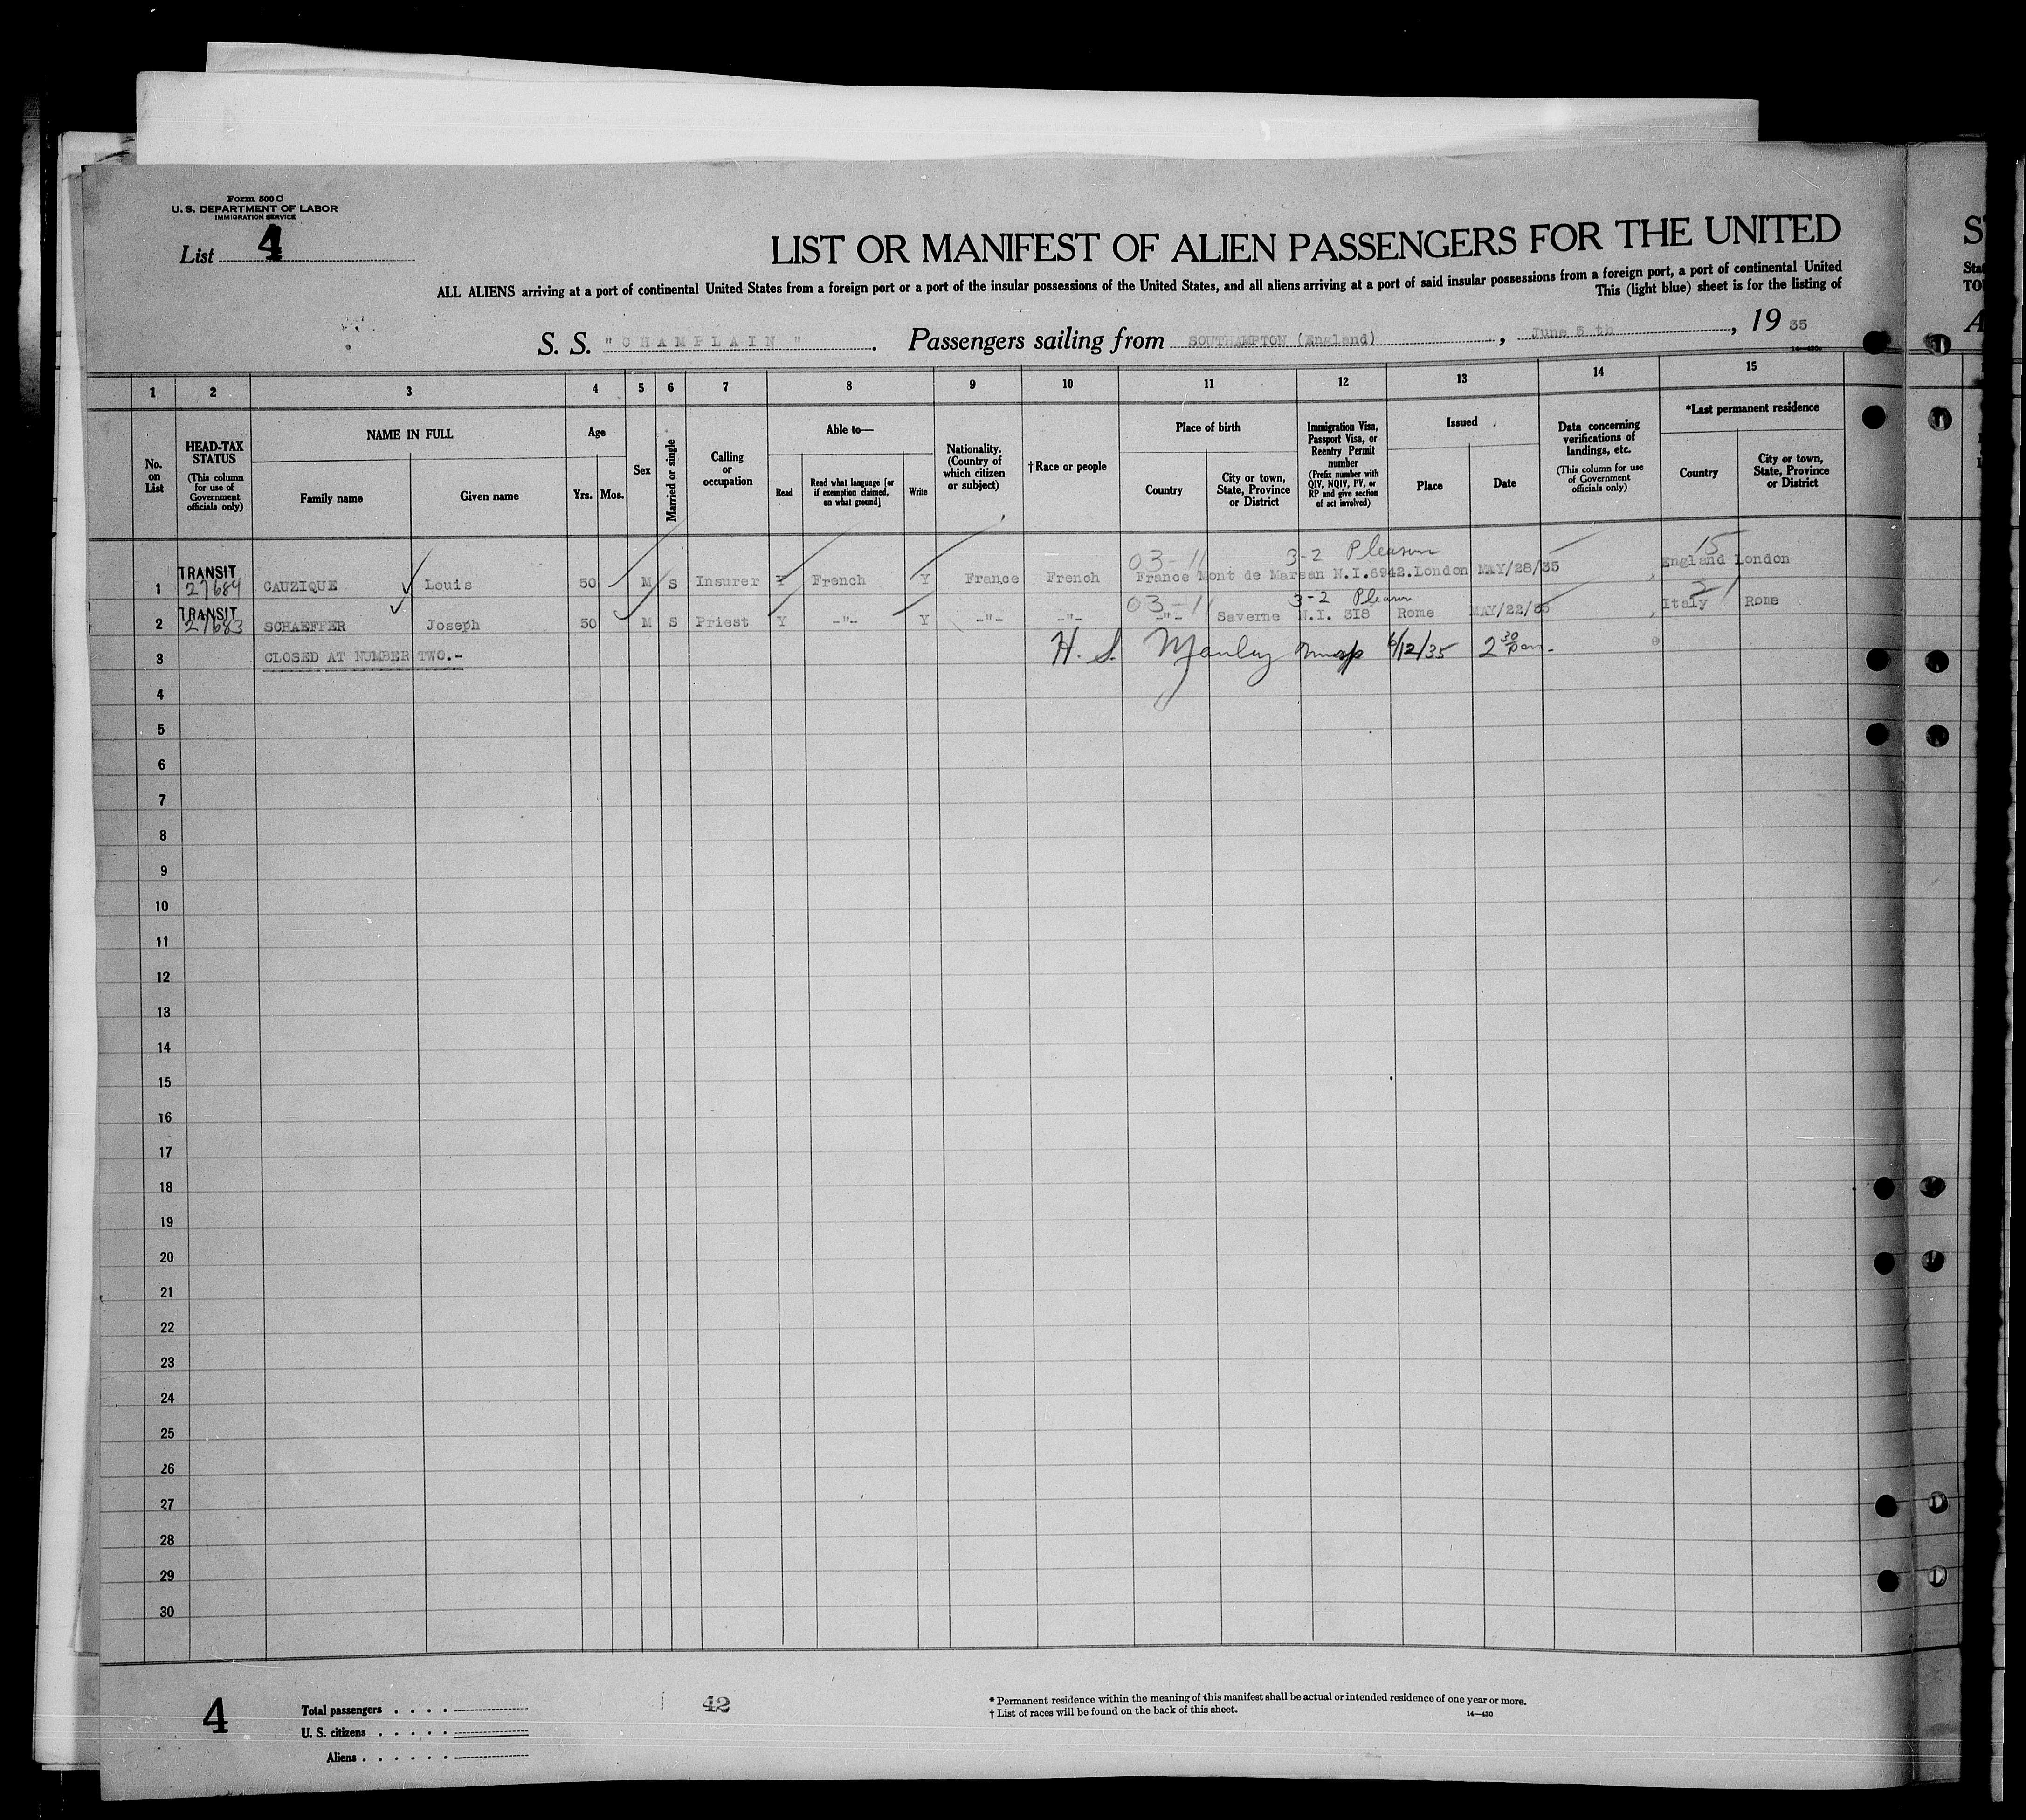 Form 500 C
U. S. DEPARTMENT OF LABOR
IMMIGRATION SERVICE
List 4
LIST OR MANIFEST OF ALIEN PASSENGERS FOR THE UNITED
ALL ALIENS arriving at a port of continental United States from a foreign port or a port of the insular possessions of the United States, and all aliens arriving at a port of said insular possessions from a foreign port, a port of continental United
This (light blue) sheet is for the listing of
S. S. " C H A M P L A I N " . Passengers sailing from SOUTHAMPTON (England) , June 5 th , 19 35
1 2 3 4 5 6 7 8 9 10 11 12 13 14 15
No. on List
HEAD-TAX STATUS (This column for use of Government officials only)
NAME IN FULL
Family name
Given name
Age
Yrs. Mos.
Sex
Married or single
Calling or occupation
Able to—
Read
Read what language [or if exemption claimed, on what ground]
Write
Nationality. (Country of which citizen or subject)
† Race or people
Place of birth
Country
City or town, State, Province or District
Immigration Visa, Passport Visa, or Reentry Permit number (Prefix number with QIV, NQIV, PV, or RP and give section of act involved)
Issued
Place
Date
Data concerning verifications of landings, etc. (This column for use of Government officials only)
*Last permanent residence
Country
City or town, State, Province or District
03-11 3-2 Pleasure 15
1 TRANSIT 27684 CAUZIQUE Louis 50 M S Insurer Y French Y France French France Mont de Marsan N.I.6942. London MAY/28/35 England London
03-11 3-2 Pleasure 21
2 TRANSIT 27683 SCHAEFFER Joseph 50 M S Priest Y -"- Y -"- -"- -"- Saverne N.I. 318 Rome MAY/22/35 Italy Rome
3 CLOSED AT NUMBER TWO.- H. S. Manley 6/12/35 2 30 pm.
4
5
6
7
8
9
10
11
12
13
14
15
16
17
18
19
20
21
22
23
24
25
26
27
28
29
30
4
Total passengers
U. S. citizens
Aliens
42
* Permanent residence within the meaning of this manifest shall be actual or intended residence of one year or more.
† List of races will be found on the back of this sheet.
14—430